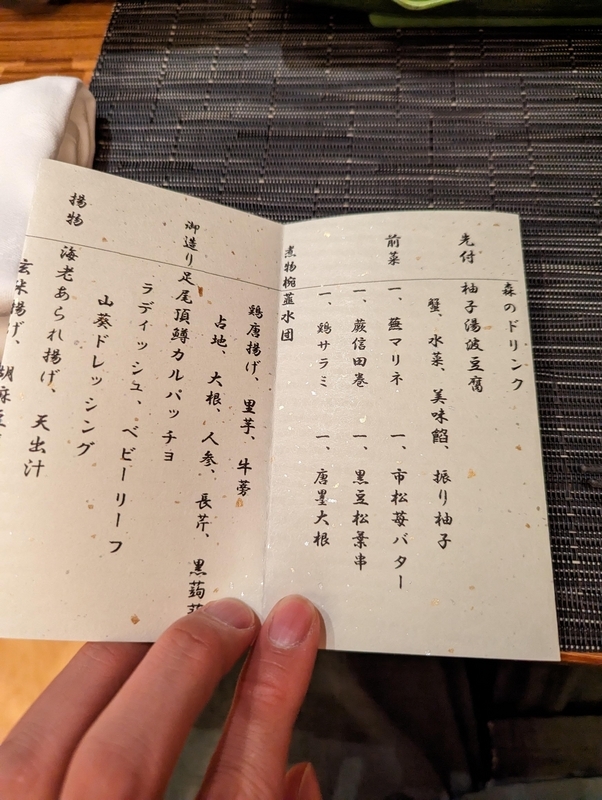 森のドリンク
先付 柚子湯波豆腐
蟹、水菜、美味餡、振り柚子
前菜 一、蕪マリネ 一、市松苺バター
一、蕨信田巻 一、黒豆松葉串
一、鶏サラミ 一、唐墨大根
煮物椀 水団
鶏唐揚げ、里芋、牛蒡
占地、大根、人参、長芹、黒蒟
御造り 足尾頂鱒カルパッチョ
ラディッシュ、ベビーリーフ
山葵ドレッシング
揚物 海老あられ揚げ、天出汁
玄米揚げ、胡麻豆